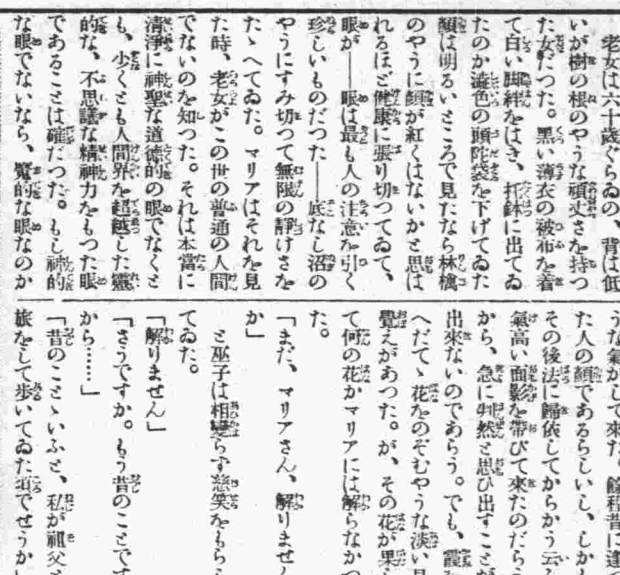 老女は六十歳ぐらゐの、背は低
いが樹の根のやうな頑丈さを持つ
た女だつた。黒い薄衣の被布を着
て白い脚絆をはき、托鉢に出てゐ
たのか澁色の頭陀袋を下げてゐた
顏は明るいところで見たなら林檎
のやうに顏が紅くはないかと思は
れるほど健康に張り切つてゐて、
眼が――眼は最も人の注意を引く
珍しいものだつた――底なし沼の
やうにすみ切つて無限の靜けさを
たゝへてゐた。マリアはそれを見
た時、老女がこの世の普通の人間
でないのを知つた。それは本當に
清淨に神聖な道德的の眼でなくと
も、少くとも人間界を超越した靈
的な、不思議な精神力をもつた眼
であることは確だつた。もし神的
な眼でないなら、魔的な眼なのか
うな氣がして來た。餘程昔に逢つ
た人の顏であるらしいし、しかも
その後法に歸依してからかう云ふ
氣高い面影を帶びて來たのだらう
から、急に判然と思ひ出すことが
出來ないのであらう。でも、霞み
へだてゝ花をのぞむやうな淡い見
覺えがあつた。が、その花が果し
て何の花かマリアには解らなかつ
た。
「まだ、マリアさん、解りません
か」
と巫子は相變らず慈笑をもらし
てゐた。
「解りません」
「さうですか。もう昔のことです
から……」
「昔のことゝいふと、私が祖父と
旅をして步いてゐた頃でせうか」